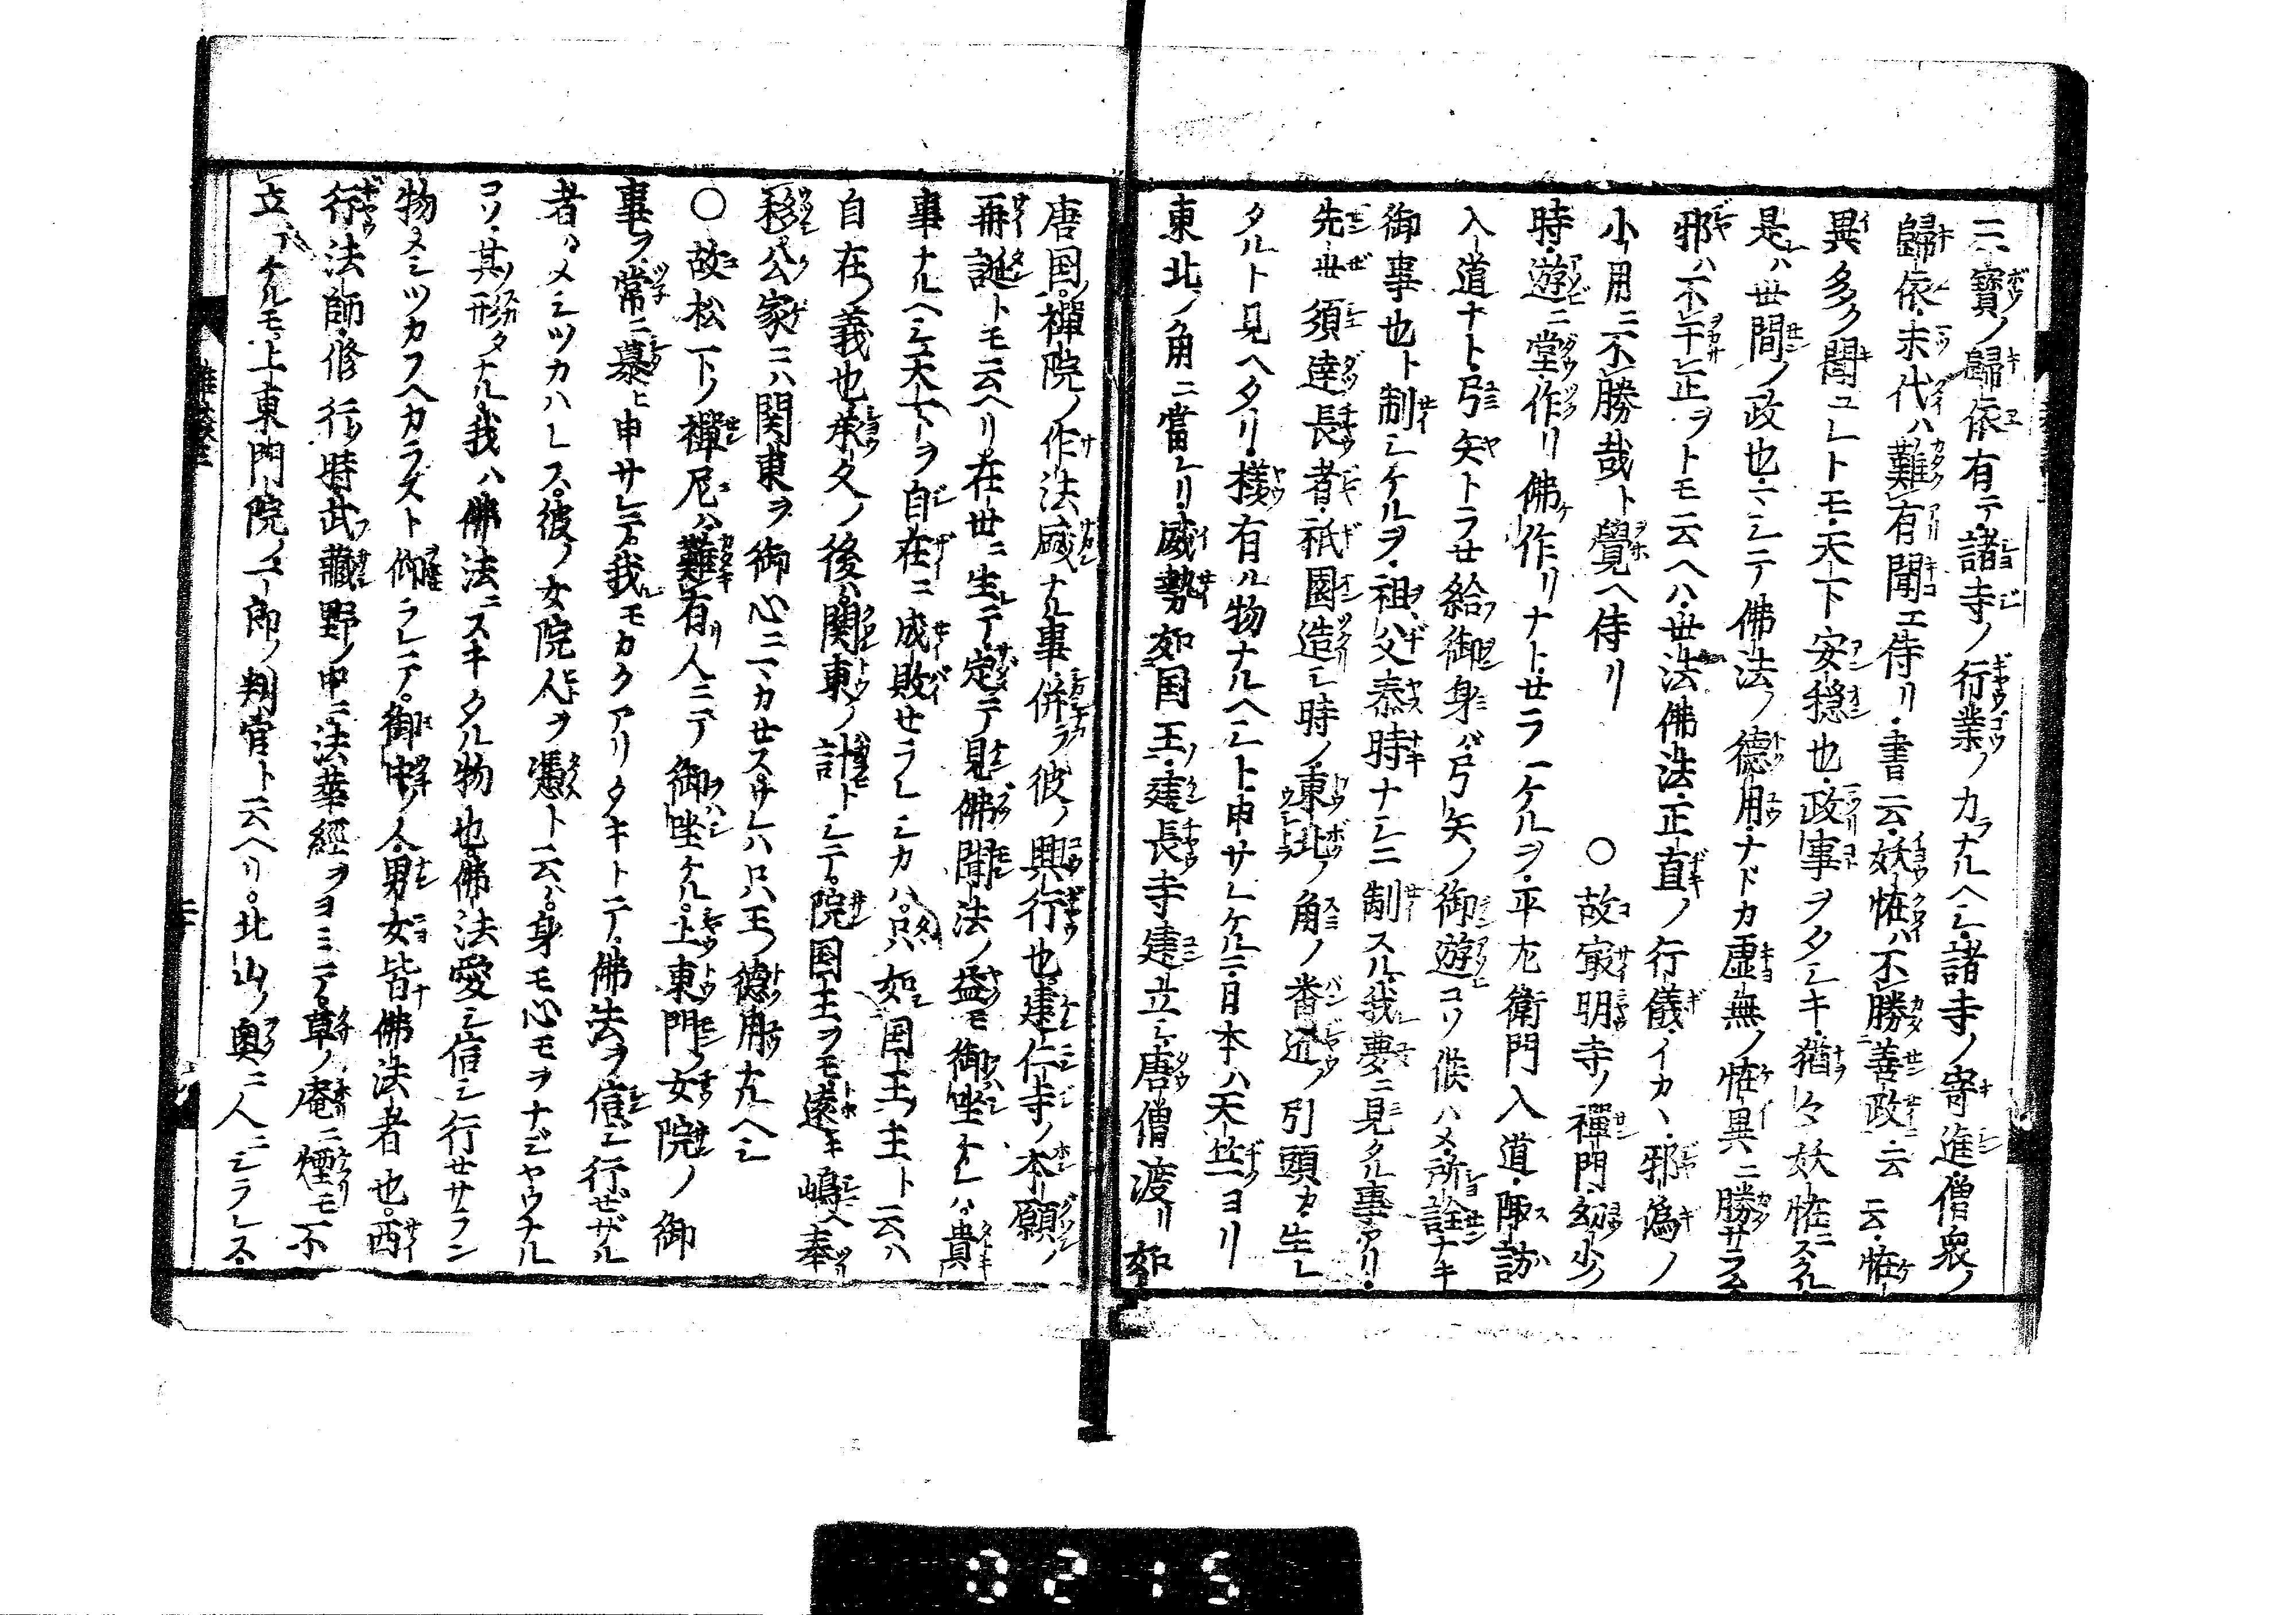 三寳ノ歸依有テ諸寺ノ行業ノカラナルヘシ諸寺ノ寄進僧衆ノ
歸依末代ハ難有聞エ侍リ書云妖恠ハ不勝善政云云恠
異多ク聞ユレトモ天下安穏也政事ヲタシキ猶々妖恠スクル
是ハ世間ノ政也マシテ佛法ノ德用ナドカ虚無ノ恠異ニ勝サラム
邪ハ不干正ヲトモ云ヘハ世法佛法正直ノ行儀イカヽ邪為ノ
小用ニ不勝哉ト覺ヘ侍リ　○故冣明寺ノ禪門幼少ノ
時遊ニ堂作リ佛作リナトせラーケルヲ平左衛門入道陬訪
入道ナト弓矢トラせ給御身ハ弓矢ノ御遊コソ候ハメ所詮ナキ
御事也ト制シケルヲ祖父泰時ナシニ制スル我夢ニ見タル事アリ
先世須達長者祇園造シ時ノ東北ノ角ノ番近ノ引頭カ生レ
タルト見ヘタリ様有ル物ナルヘシト申サレケルニ日本ハ天竺ヨリ
東北ノ角ニ當レリ威勢如国王建長寺建立シ唐僧渡リ如
唐国禪院ノ作法威ナル事併ラ彼ノ興行也建仁寺ノ本願ノ
再誕トモ云ヘリ在世ニ生テ定テ見佛聞法ノ益モ御坐ケレハ貴
事ナルヘシ天下ヲ自在ニ成敗せラレシカハ只如国王王ト云ハ
自在ノ義也承久ノ後ハ関東ノ計トシテ院国王ヲモ遠キ嶋ヘ奉
移公家ニハ関東ヲ御心ニマカせスサレハ只王ノ德用ナルヘシ
○故松下ノ禪尼ハ難有人ニテ御坐ケル上東門ノ女院ノ御
事ヲ常ニ慕ヒ申サレテ我モカクアリタキトテ佛法ヲ信シ行ゼザル
者ハメシツカハレス彼ノ女院人ヲ憑ト云ハ身モ心モヲナジヤウナル
コソ其形タナル我ハ佛法ニスキタル物也佛法愛シ信シ行せサラン
物メシツカフヘカラスト仰ラレテ御中ノ人男女皆佛法者也西
行法師修行時武藏野ノ中ニ法華經ヲヨミテ草ノ庵ニ煙モ不
立アケルモ上東門院ノ一郎ノ判官ト云ヘリ北山ノ奥ニ人ニシラレス
0215